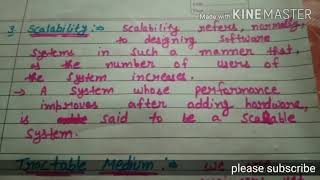 Made with KINEMASTER
3 Scalability :→ Scalability refers, normally,
to designing software
systems in such a manner that,
as the number of users of
the system increases.
→ A system whose performance
improves after adding hardware,
is said to be a scalable
system.
Tractable Medium :→ we
please subscribe